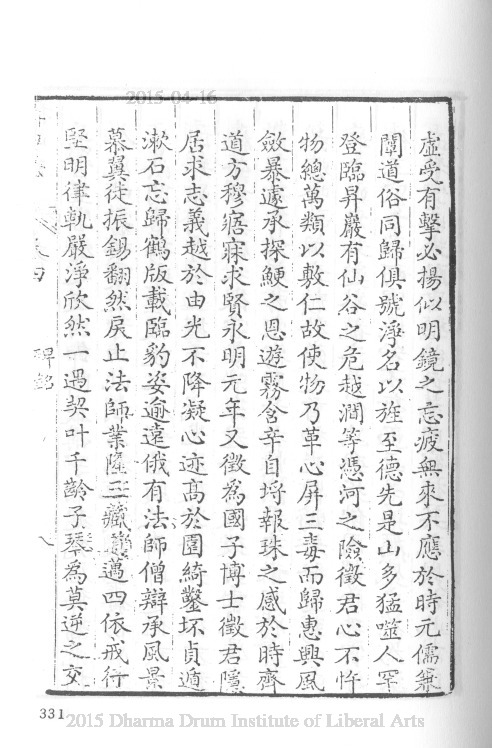 2015-04-16
虛受有擊必揚似明鏡之忘疲無來不應於時元儒兼
闡道俗同歸俱號淨名以旌至德先是山多猛噬人罕
登臨昇巖有仙谷之危越澗等憑河之險徵君心不忤
物總萬類以敷仁故使物乃革心屏三毒而歸惠興風
斂暴遽承探鯁之恩遊霧含辛自埒報珠之感於時齊
道方穆寤寐求賢永明元年又徵為國子博士徵君隱
居求志義越於由光不降凝心迹高於園綺鑿坏貞遁
漱石忘歸鶴版載臨豹姿逾遠俄有法師僧辯承風景
慕翼徒振錫翻然戾止法師業隆三藏邁四依戒行
堅明律軌嚴淨欣然一遇契叶千齡子琴為莫逆之交
碑銘
八
331
2015 Dharma Drum Institute of Liberal Arts